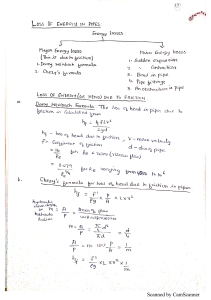 LOSS OF ENERGY IN PIPES:
Energy losses
Major Energy losses
[This is due to friction]
1. Darcy Weisbach formula
2. Chezy's formula
Minor Energy losses
1. Sudden expansion
2. " Contraction
3. Bend in pipe
4. Pipe fittings
5. An obstruction in pipe
LOSS OF ENERGY (OR HEAD) DUE TO FRICTION:
a. Darcy Weisbach Formula: The loss of head in pipe due to
friction is calculated from
hf = 4 f L V² / 2gd
hf - loss of head due to friction, V - mean velocity
f - Co-efficient of friction d - dia of pipe
= 16/Re for Re < 2000 (viscous flow)
= 0.079/Re^1/4 for Re varying from to 10⁶
b. Chezy's formula for loss of head due to friction in pipes
hf = f'/ρg × P/A × L × V²
A/P = Area of flow / wetted perimeter
m = A/P = π/4 d² / πd = d/4
A/P = m (or) P/A = 1/m
hf = f'/ρg × L × V² × 1/m
Scanned by CamScanner